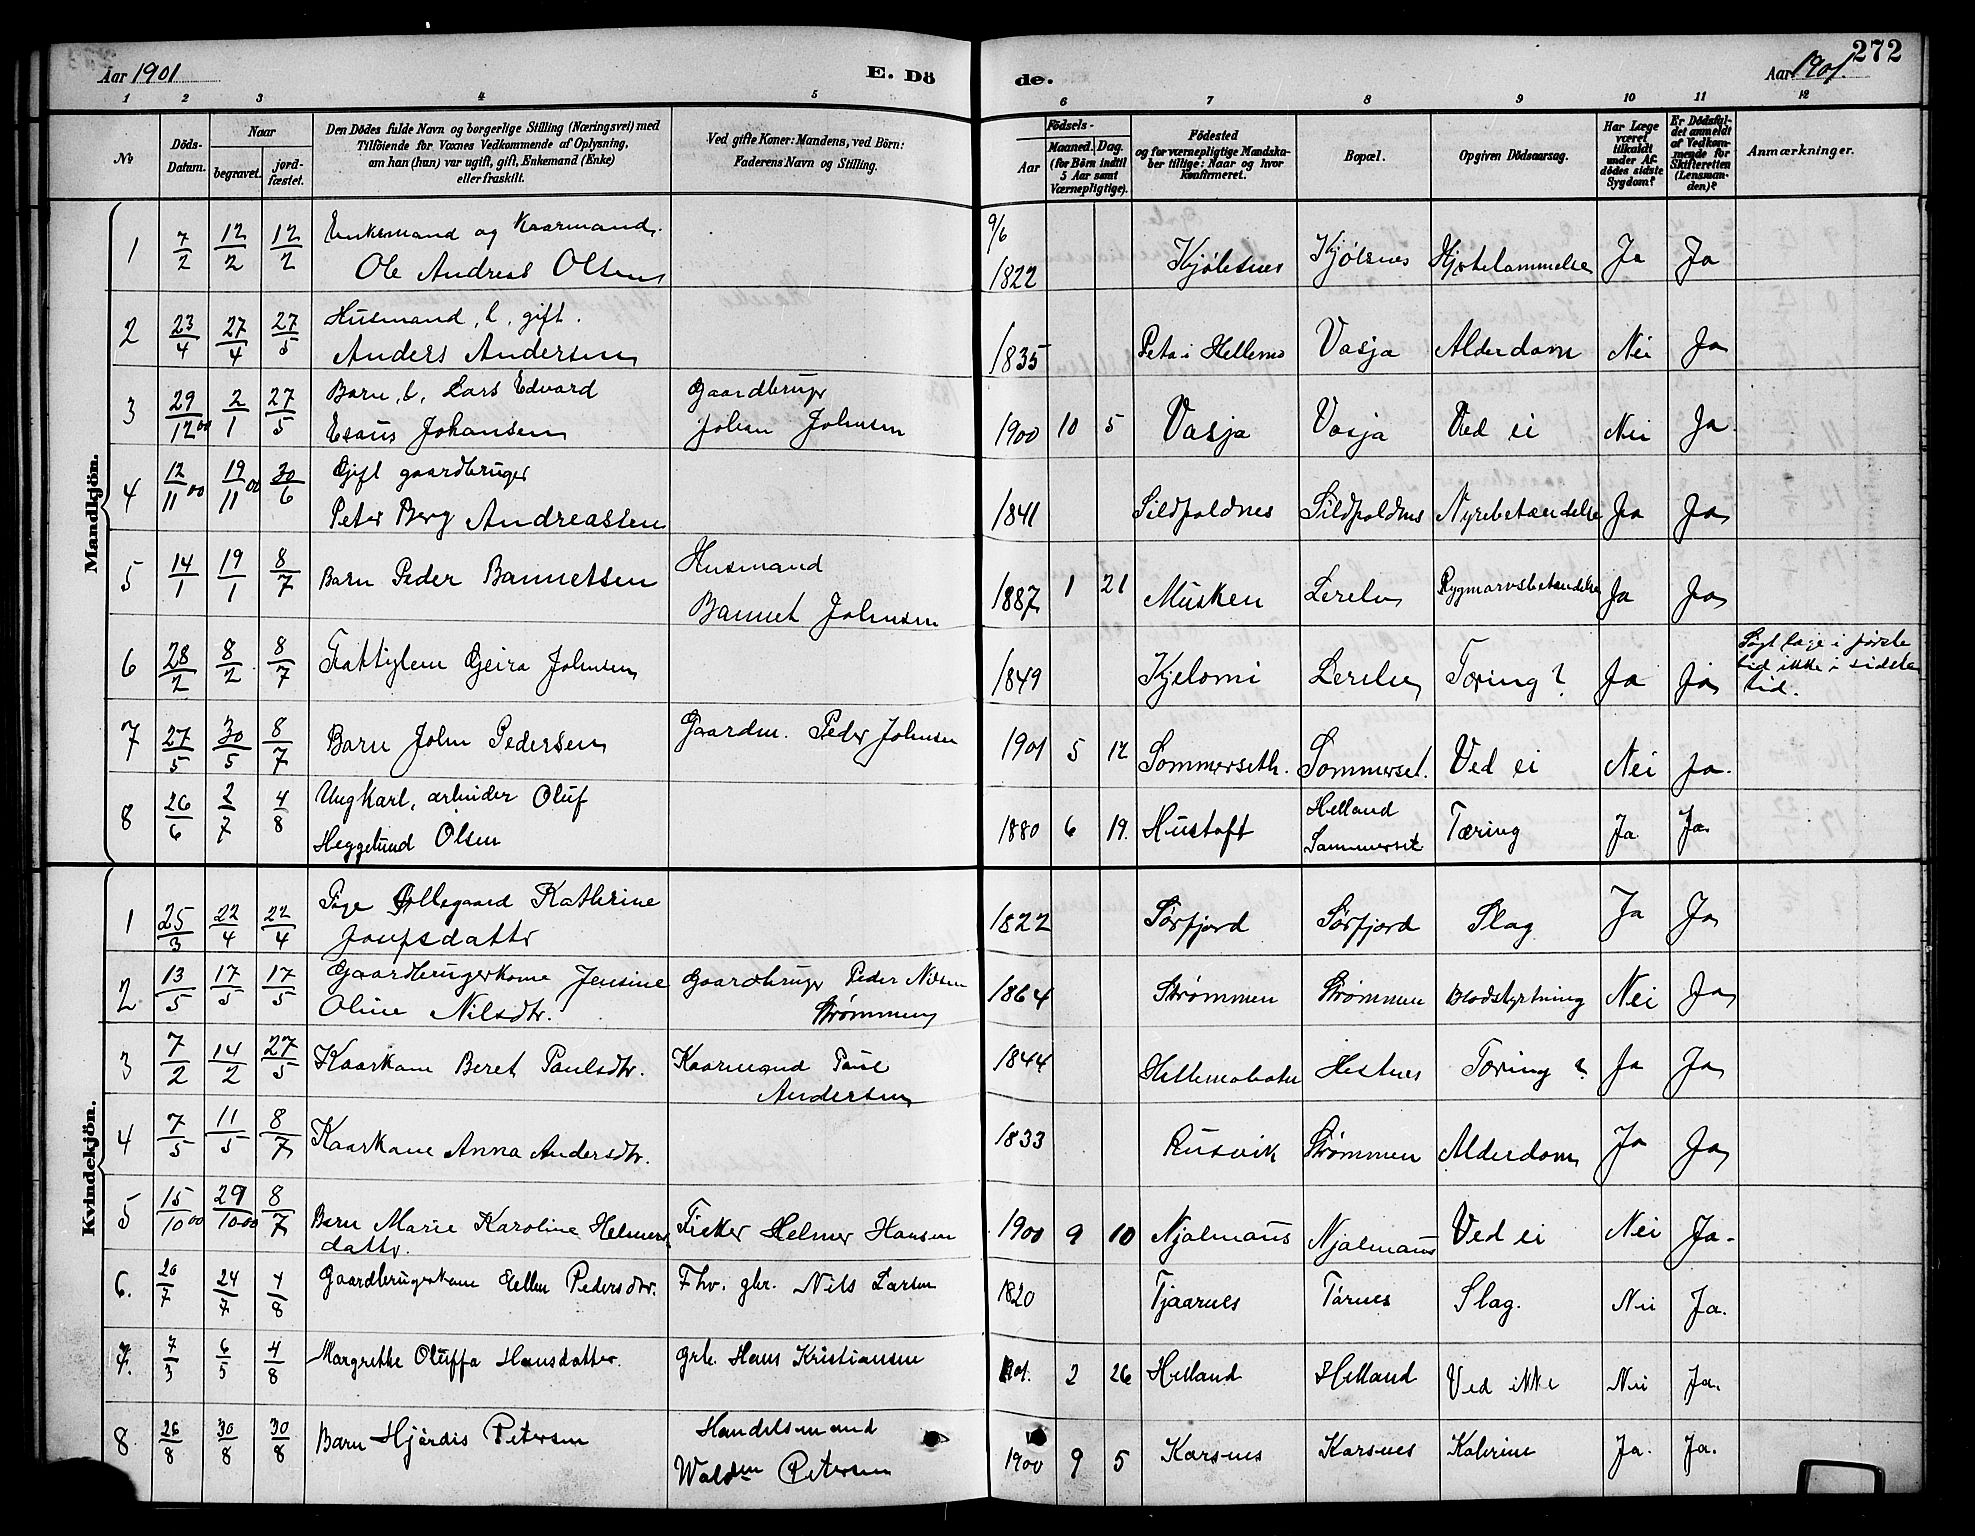 Aar 1901 E. Dö de. Aar 1901. 272
1 2 3 4 5 6 7 8 9 10 11 12
No
Döds-Datum.
Naar
begravet.
jord-fæstet.
Den Dödes fulde Navn og borgerlige Stilling (Næringsvei) med
Tilföiende for Voxnes Vedkommende af Oplysning,
om han (hun) var ugift, gift, Enkemand (Enke)
eller fraskilt.
Ved gifte Koner: Mandens, ved Börn:
Faderens Navn og Stilling.
Födsels-
Aar
Maaned. Dag.
(for Börn indtil
5 Aar samt
Værnepligtige).
Födested
og for værnepligtige Mandska-
ber tillige: Naar og hvor
konfirmeret.
Bopæl.
Opgiven Dödsaarsag.
Har Læge
været
tilkaldt
under Af-
dödes sidste
Sygdom?
Er Dödsfal-
det anmeldt
af Vedkom-
mende for
Skifteretten
(Lensman-
den)?
Anmærkninger.
Mandkjön.
1 7/2 12/2 12/2 Enkemand og Kaarmand. 9/6
Ole Andreas Olsen 1822 Kjølsnes Kjølsnes Hjertelammelse Ja Ja
2 23/4 27/4 27/5 Husmand, l, gift.
Anders Andersen 1835 Peta i Hellemo Vasja Alderdom Nei Ja
3 29/12 00 2/1 27/5 Barn, l, Lars Edvard Gaardbruger
Esaus Johansen Johan Johnsen 1900 10 5 Vasja Vasja Ved ei Nei Ja
4 12/11 00 19/11 00 30/6 Gift gaardbruger
Peter Berg Andreassen 1841 Sildpoldnes Sildpoldnes Nyrebetændelse Ja Ja
5 14/1 19/1 8/7 Barn Peder Bannetsen Husmand
Bannet Johnsen 1887 1 21 Musken Lerelv Rygmarvsbetændelse Ja Ja
6 28/2 8/2 8/7 Fattiglem Geira Johnsen 1849 Kjelomi Lerelv Tæring? Ja Ja Søgt læge i første
tid ikke i sidste
tid.
7 27/5 30/5 8/7 Barn John Pedersen Gaardm. Peder Johnsen 1901 5 12 Sommerseth. Sommerset. Ved ei Nei Ja.
8 26/6 2/7 4/8 Ungkarl, arbeider Oluf
Heggelund Olsen 1880 6 19. Hustoft Helland
Sommerset Tæring Ja Ja.
Kvindekjön.
1 25/3 22/4 22/4 Pige Ollegaard Kathrine
1822 Sørfjord Sørfjord Slag Ja Ja
2 13/5 17/5 17/5 Gaardbrugerkone Jensine Gaardbruger Peder Nilsen
Oline Nilsdtr. Strømmen 1864 Strømmen Strømmen Blodstyrtning Nei Ja
3 7/2 14/2 27/5 Kaarkone Beret Paulsdtr. Kaarmand Paul
Andersen 1844 Hellemobotn Hestnes Tæring? Ja Ja
4 7/5 11/5 8/7 Kaarkone Anna Andersdtr. 1833 Rusvik Strømmen Alderdom Ja Ja
5 15/10 00 29/10 00 8/7 Barn Marie Karoline Helmers Fisker Helmer Hansen 1900 9 10 Njalmaus Njalmaus Ved ei Nei Ja.
dattr.
6. 20/7 24/7 4/8 Gaardbrugerkone Ellen Pedersdtr. Fhv. gbr. Nils Larsen 1820 Tjaarnes Tårnes Slag. Nei Ja.
7. 7/3 6/5 4/8 Margrethe Oluffa Hansdatter. Grb. Hans Kristiansen 1901. 2 26 Helland Helland Ved ikke Nei Ja.
8 26/8 30/8 30/8 Barn Hjørdis Petersen Handelsmand
Petersen 1900 9 5 Korsnes Korsnes Kolerine Ja. Ja.